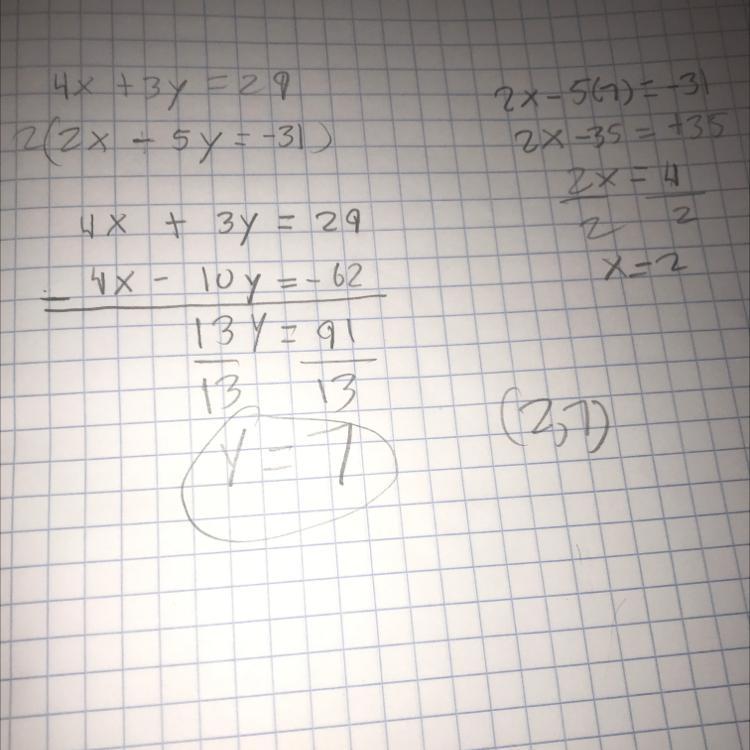 4x + 3y = 29
2(2x - 5y = -31)
4x + 3y = 29
- 4x - 10y = -62
13y = 91
13 13
y = 7
2x - 5(7) = -31
2x - 35 = +35
2x = 4
2 2
x = 2
(2,7)